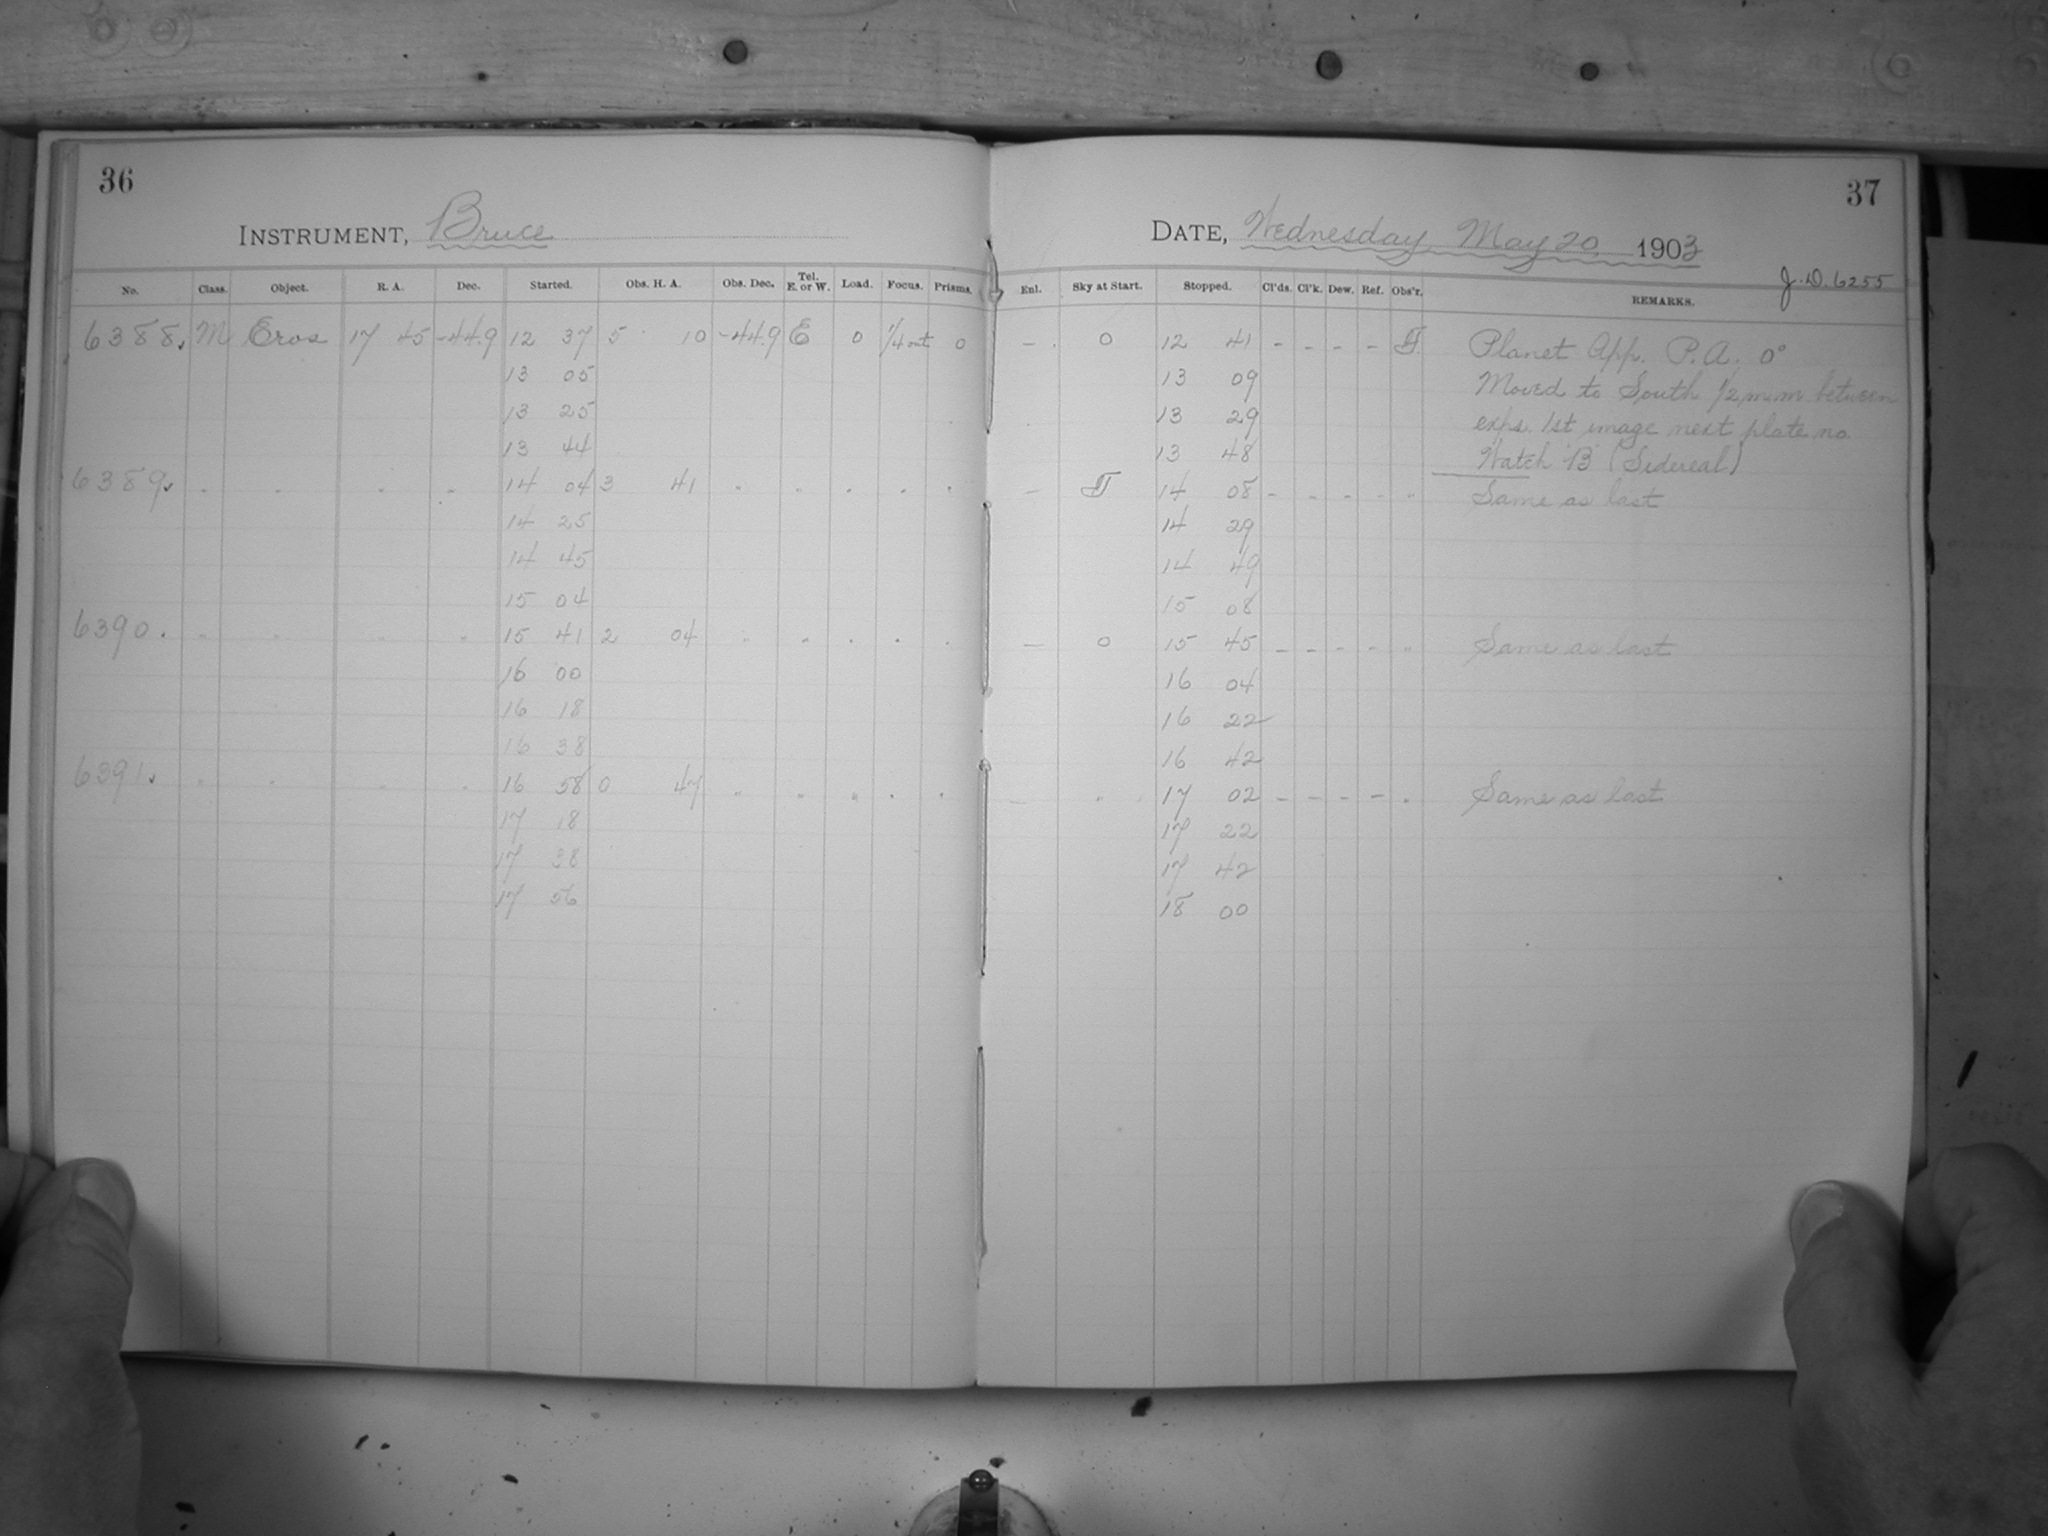 36
INSTRUMENT, Bruce
No. Class. Object. R. A. Dec. Started. Obs. H. A. Obs. Dec. Tel. E. or W. Load. Focus. Prisms.
6388. M Eros 17 45 -44.9 12 37 5 10 -44.9 E 0 1/4 out 0
13 05
13 25
13 44
6389. " " " " 14 04 3 41 " " " " "
14 25
14 45
15 04
6390. " " " " 15 41 2 04 " " " " "
16 00
16 18
16 38
6391. " " " " 16 58 0 47 " " " " "
17 18
17 38
17 56
37
DATE, Wednesday, May 20, 1903
J.D. 6255
Enl. Sky at Start. Stopped. Cl'ds. Cl'k. Dew. Ref. Obs'r. REMARKS.
- 0 12 41 - - - - Planet App. P.A. 0°
13 09 Moved to South 1/2 m.m. between
13 29 exps. 1st image next plate no.
13 48 Watch B (Sidereal)
- 14 08 - - - - " Same as last
14 29
14 49
15 08
- 0 15 45 - - - - " Same as last
16 04
16 22
16 42
- " 17 02 - - - - " Same as last
17 22
17 42
18 00